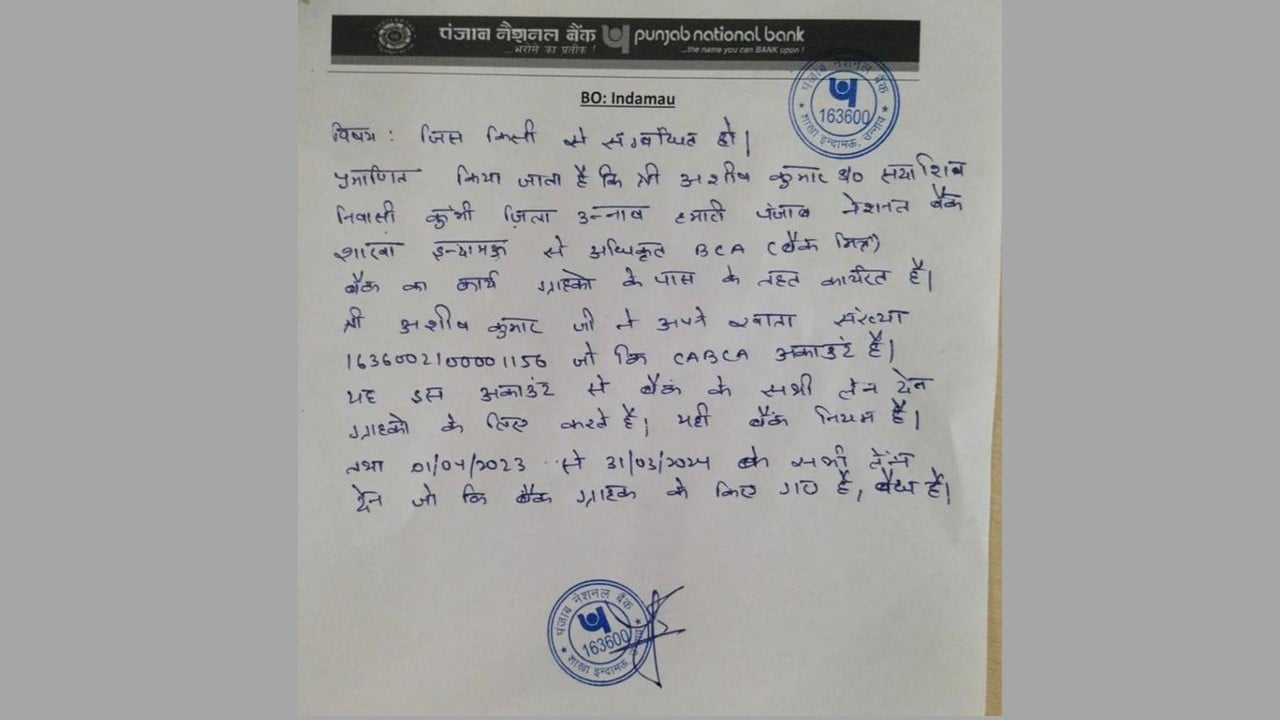 पंजाब नैशनल बैंक punjab national bank
...भरोसे का प्रतीक ! ...the name you can BANK upon !
BO: Indamau
पंजाब नेशनल बैंक
163600
शाखा इन्दामऊ, उन्नाव
विषय : जिस किसी से सम्बंधित हो|
प्रमाणित किया जाता है कि श्री अशीष कुमार S/O सदाशिव
निवासी कुंभी ज़िला उन्नाव हमारी पंजाब नेशनल बैंक
शाखा इन्दामऊ से अधिकृत BCA (बैंक मित्र)
बैंक का कार्य ग्राहको के पास के तहत कार्यरत है|
श्री अशीष कुमार जी ने अपने खाता संख्या
1636002100001156 जो कि CABCA अकाउंट है|
यह इस अकाउंट से बैंक के सभी लेन देन
ग्राहको के लिए करते है| यही बैंक नियम है|
तथा 01/04/2023 से 31/03/2024 के सभी लेन
देन जो कि बैंक ग्राहक के किए गए है, वैध है|
पंजाब नेशनल बैंक
163600
शाखा इन्दामऊ, उन्नाव